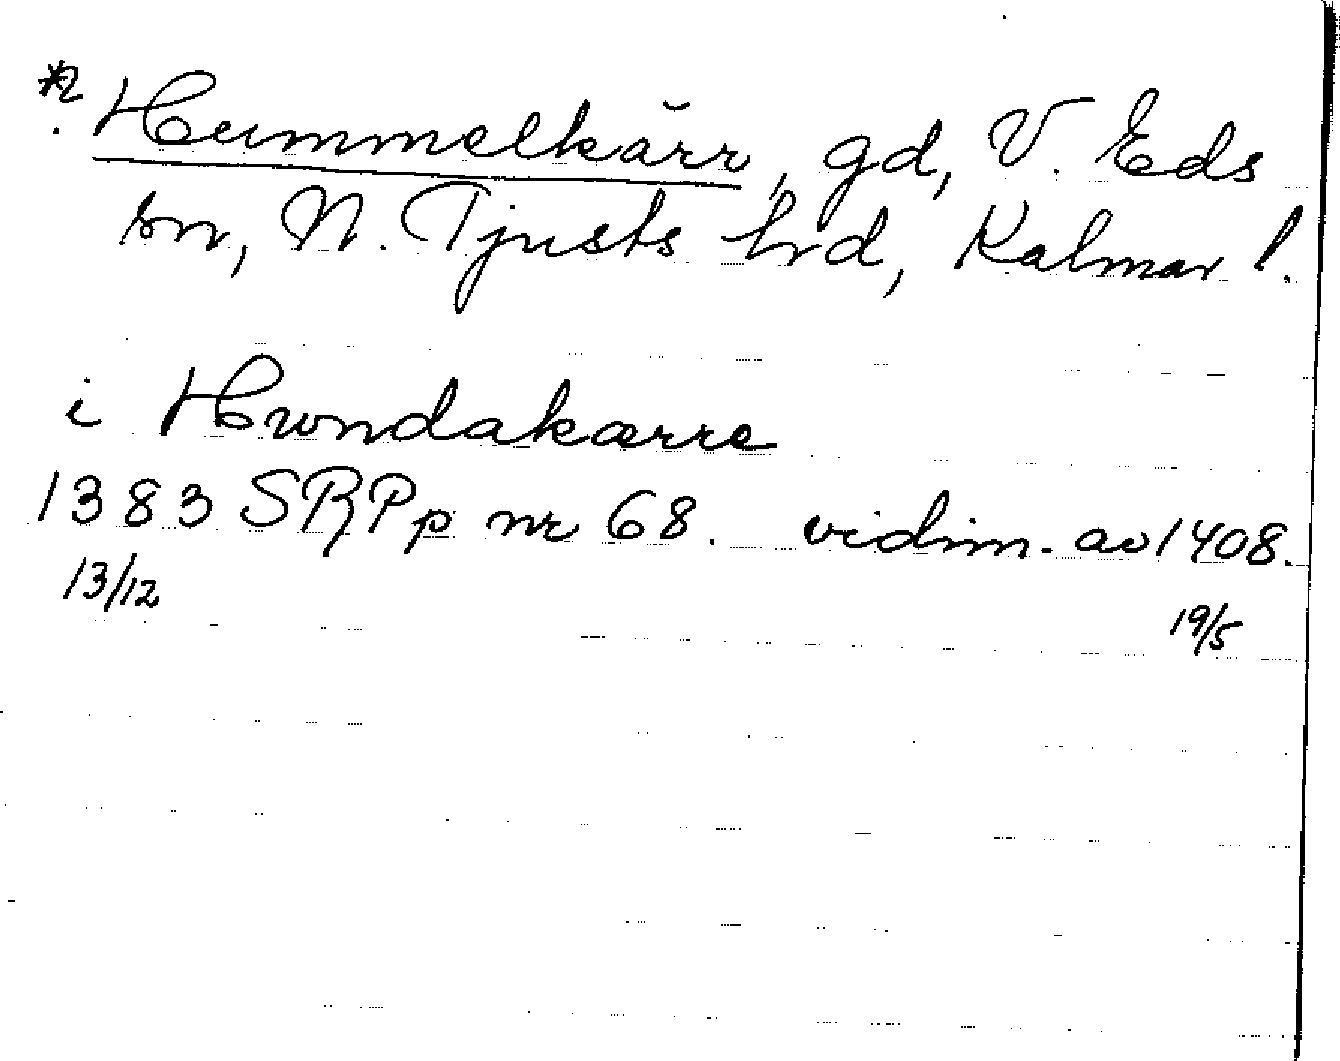 *? Hummelkärr, gd, V. Eds
sn, N. Tjusts hrd, Kalmar l.
i Hwndakærre
1383 SRPp nr 68. vidim. av 1408.
13/12 19/5